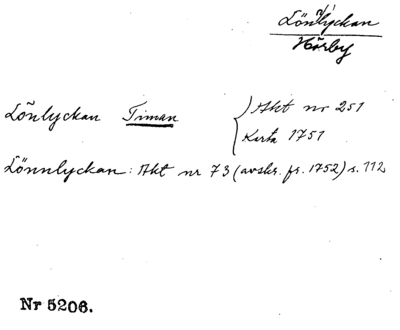 Lönlyckan
Hörby
Lönlyckan Timan
Akt nr 251
Karta 1751
Lönnlyckan: Akt nr 73 (avskr. fr. 1752) s. 112
Nr 5206.